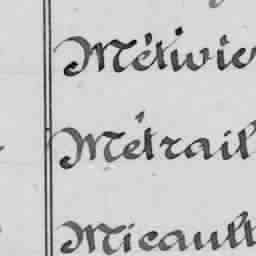 Métivie
Métrail
Micault